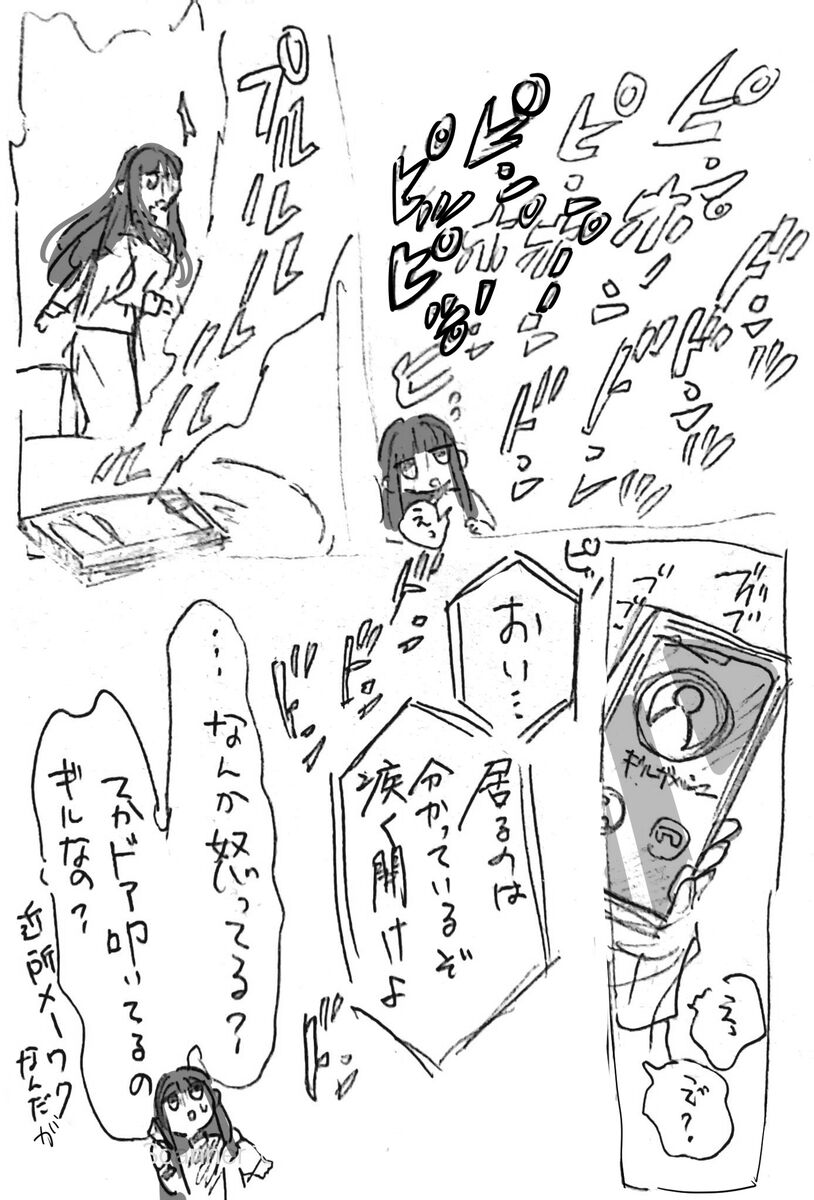 ピンポーン
ピンポーン
ピンポーン
ピッ
ピンポーン
ドンッ
ドンッ
ドンッ
ドンッ
ドンッ
えっ
プルルルルルル
ブブブ
ブブブ
ギルガメッシュ
えっ
で?
ピッ
おい…
居るのは
分かっているぞ
疾く開けよ
ドンッ
ドンッ
ドンッ
ドンッ
…なんか怒ってる?
てかドア叩いてるの
ギルなの?
近所メーワク
なんだが